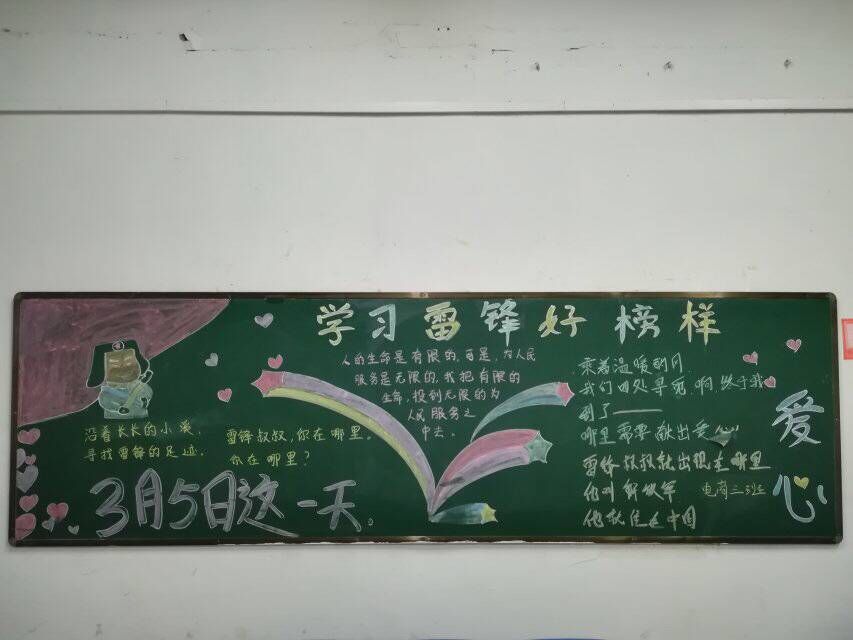 学习雷锋好榜样
人的生命是有限的,可是,为人民
服务是无限的,我把有限的
生命,投到无限的为
人民服务之
中去。
沿着长长的小溪,
寻找雷锋的足迹。
雷锋叔叔,你在哪里。
你在哪里?
3月5日这一天。
乘着温暖的月
我们四处寻觅,啊,终于我
到了——
哪里需要献出爱心
雷锋叔叔就出现在哪里
他叫解放军
他就住在中国
电商三班
爱心